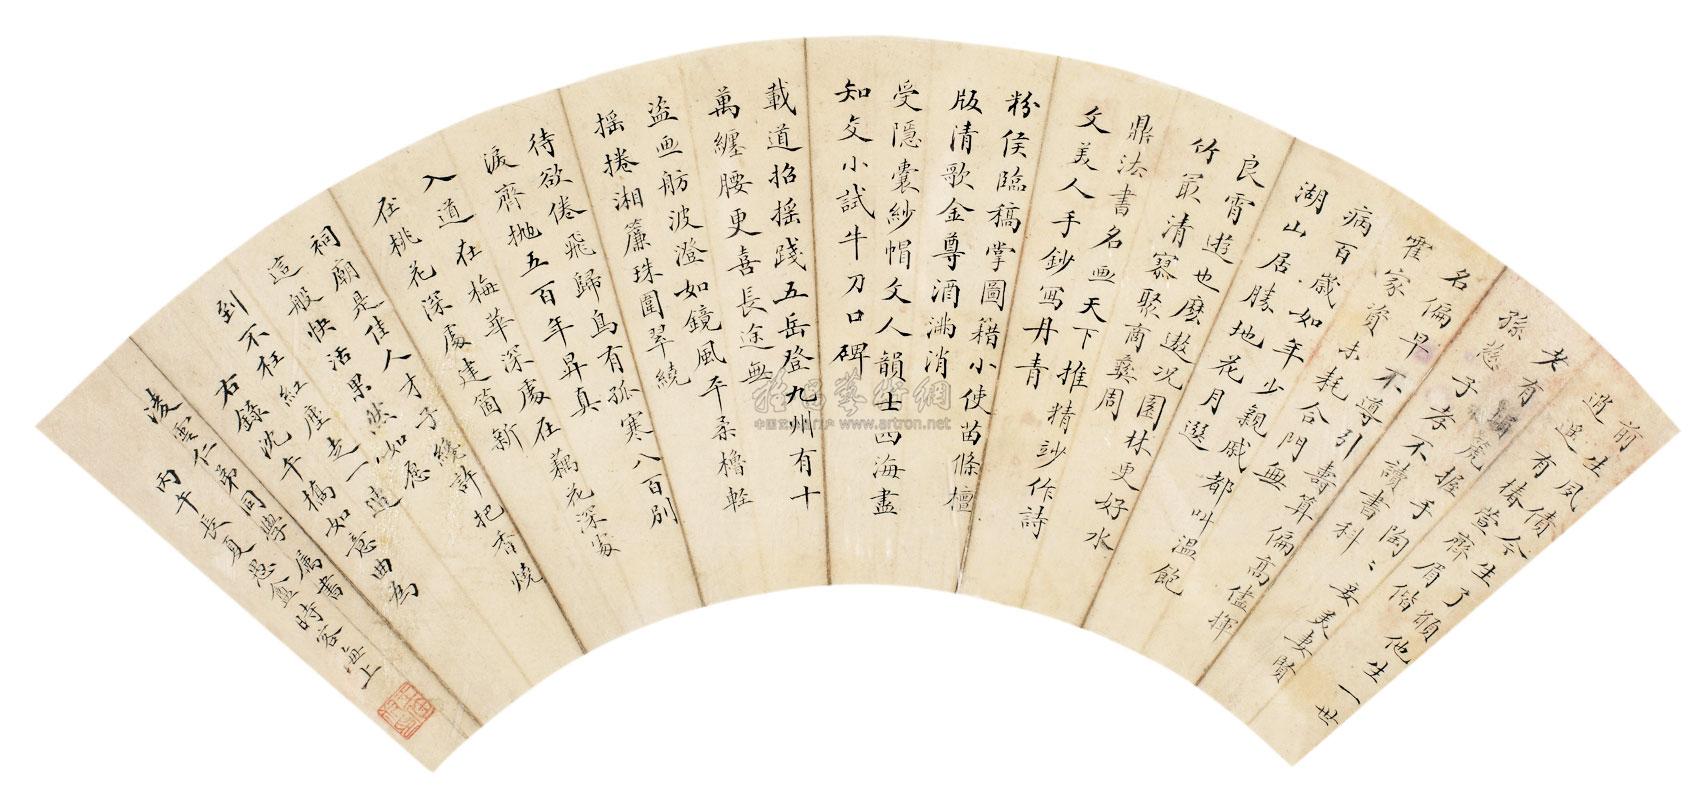 前生夙債今生了願他生一世
逍遥有椿萱齊眉偕
老有箎握手陶〻妾美妻賢
孫慈子孝不讀書科
名偏早不導引壽算偏高儘揮
霍家資未耗合門無
病百歲如年少親戚都叫温飽
湖山居勝地花月選
良霄遊也麽遨況園林更好水
竹最清寥聚商彝周
鼎法書名画天下推精妙作詩
文美人手鈔写丹青
粉侯臨稿掌圖籍小使苗條檀
版清歌金尊酒满消
受隱囊紗帽文人韻士四海盡
知交小試牛刀口碑
載道招摇踐五岳登九州有十
萬纏腰更喜長途無
盗画舫波澄如鏡風平柔櫓軽
摇捲湘簾珠圍翠繞
待欲倦飛歸鳥有孤寒八百別
淚齊抛五百年昇真
入道在梅華深處在藕花深处
在桃花深處建箇新
祠廟是佳人才子纔許把香燒
這般快活果然如愿
到不枉紅塵走一遭
右錄沈午橋如意曲為
淩雲仁弟同學属書
丙午長夏愚盦時客海上
www.artron.net